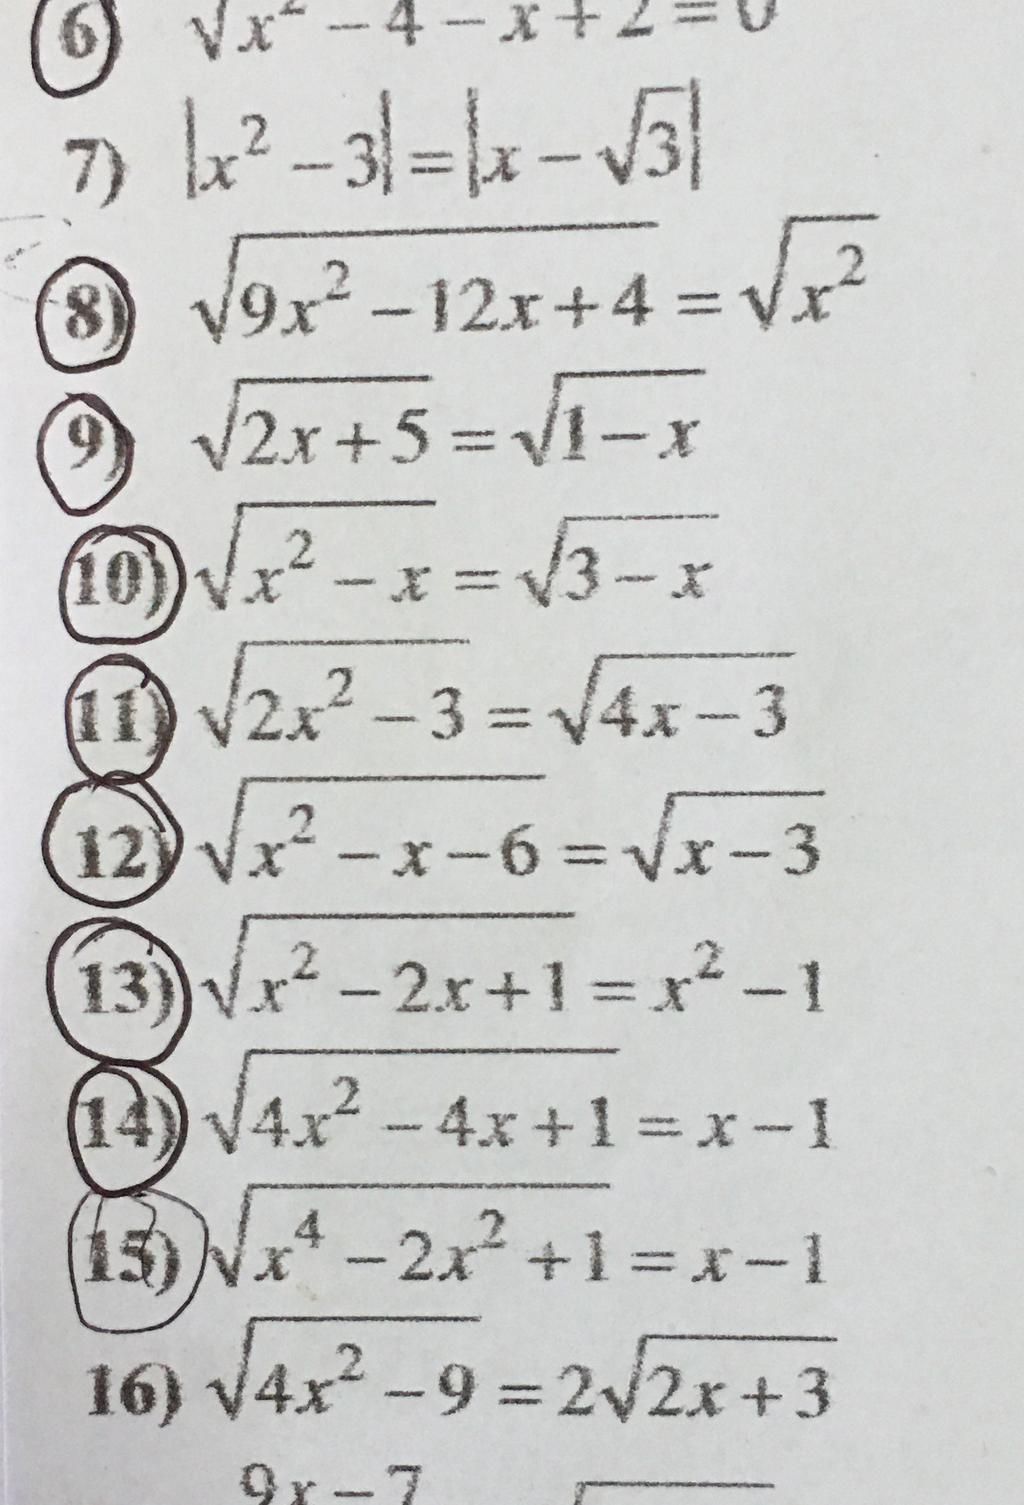 6) √x² − 4 − x + 2 = 0
7) |x² − 3| = |x − √3|
8) √9x² − 12x + 4 = √x²
9) √2x + 5 = √1 − x
10) √x² − x = √3 − x
11) √2x² − 3 = √4x − 3
12) √x² − x − 6 = √x − 3
13) √x² − 2x + 1 = x² − 1
14) √4x² − 4x + 1 = x − 1
15) √x⁴ − 2x² + 1 = x − 1
16) √4x² − 9 = 2√2x + 3
9x − 7